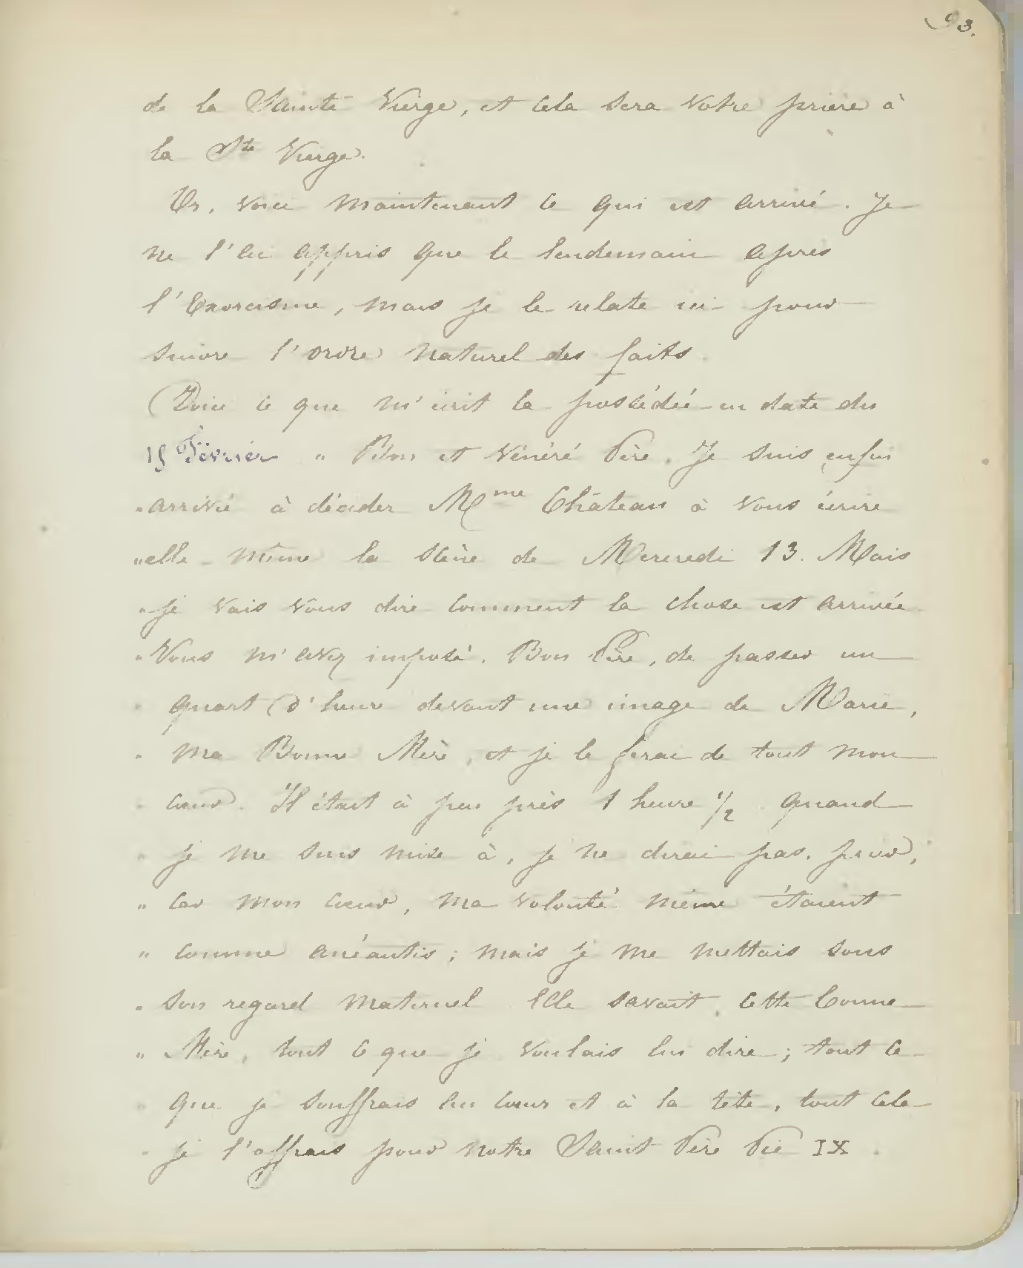 93.
de la Sainte Vierge, et cela sera votre prière à
la Ste Vierge.
Or, voici maintenant ce qui est arrivé. Je
ne l'ai appris que le lendemain après
l'Exorcisme, mais je le relate ici pour
suivre l'ordre naturel des faits.
(Voici ce que m'écrit la possédée en date du
15 Février " Bon et Vénéré Père. Je suis enfin
" arrivé à décider Mme Château à vous écrire
" elle-même la scène de Mercredi 13. Mais
" je vais vous dire comment la chose est arrivée.
" Vous m'avez imposé. Bon Père, de passer un
" quart d'heure devant une image de Marie,
" ma Bonne Mère, et je le ferai de tout mon
" cœur. Il était à peu près 1 heure 1/2 quand
" je me suis mise à, je ne dirai pas, prier,
" car mon cœur, ma volonté même étaient
" comme anéantis; mais je me mettais sous
" son regard maternel Elle savait, cette bonne
" Mère, tout ce que je voulais lui dire; tout ce
" que je souffrais au cœur et à la tête, tout cela
" je l'offrais pour notre Saint Père Pie IX.